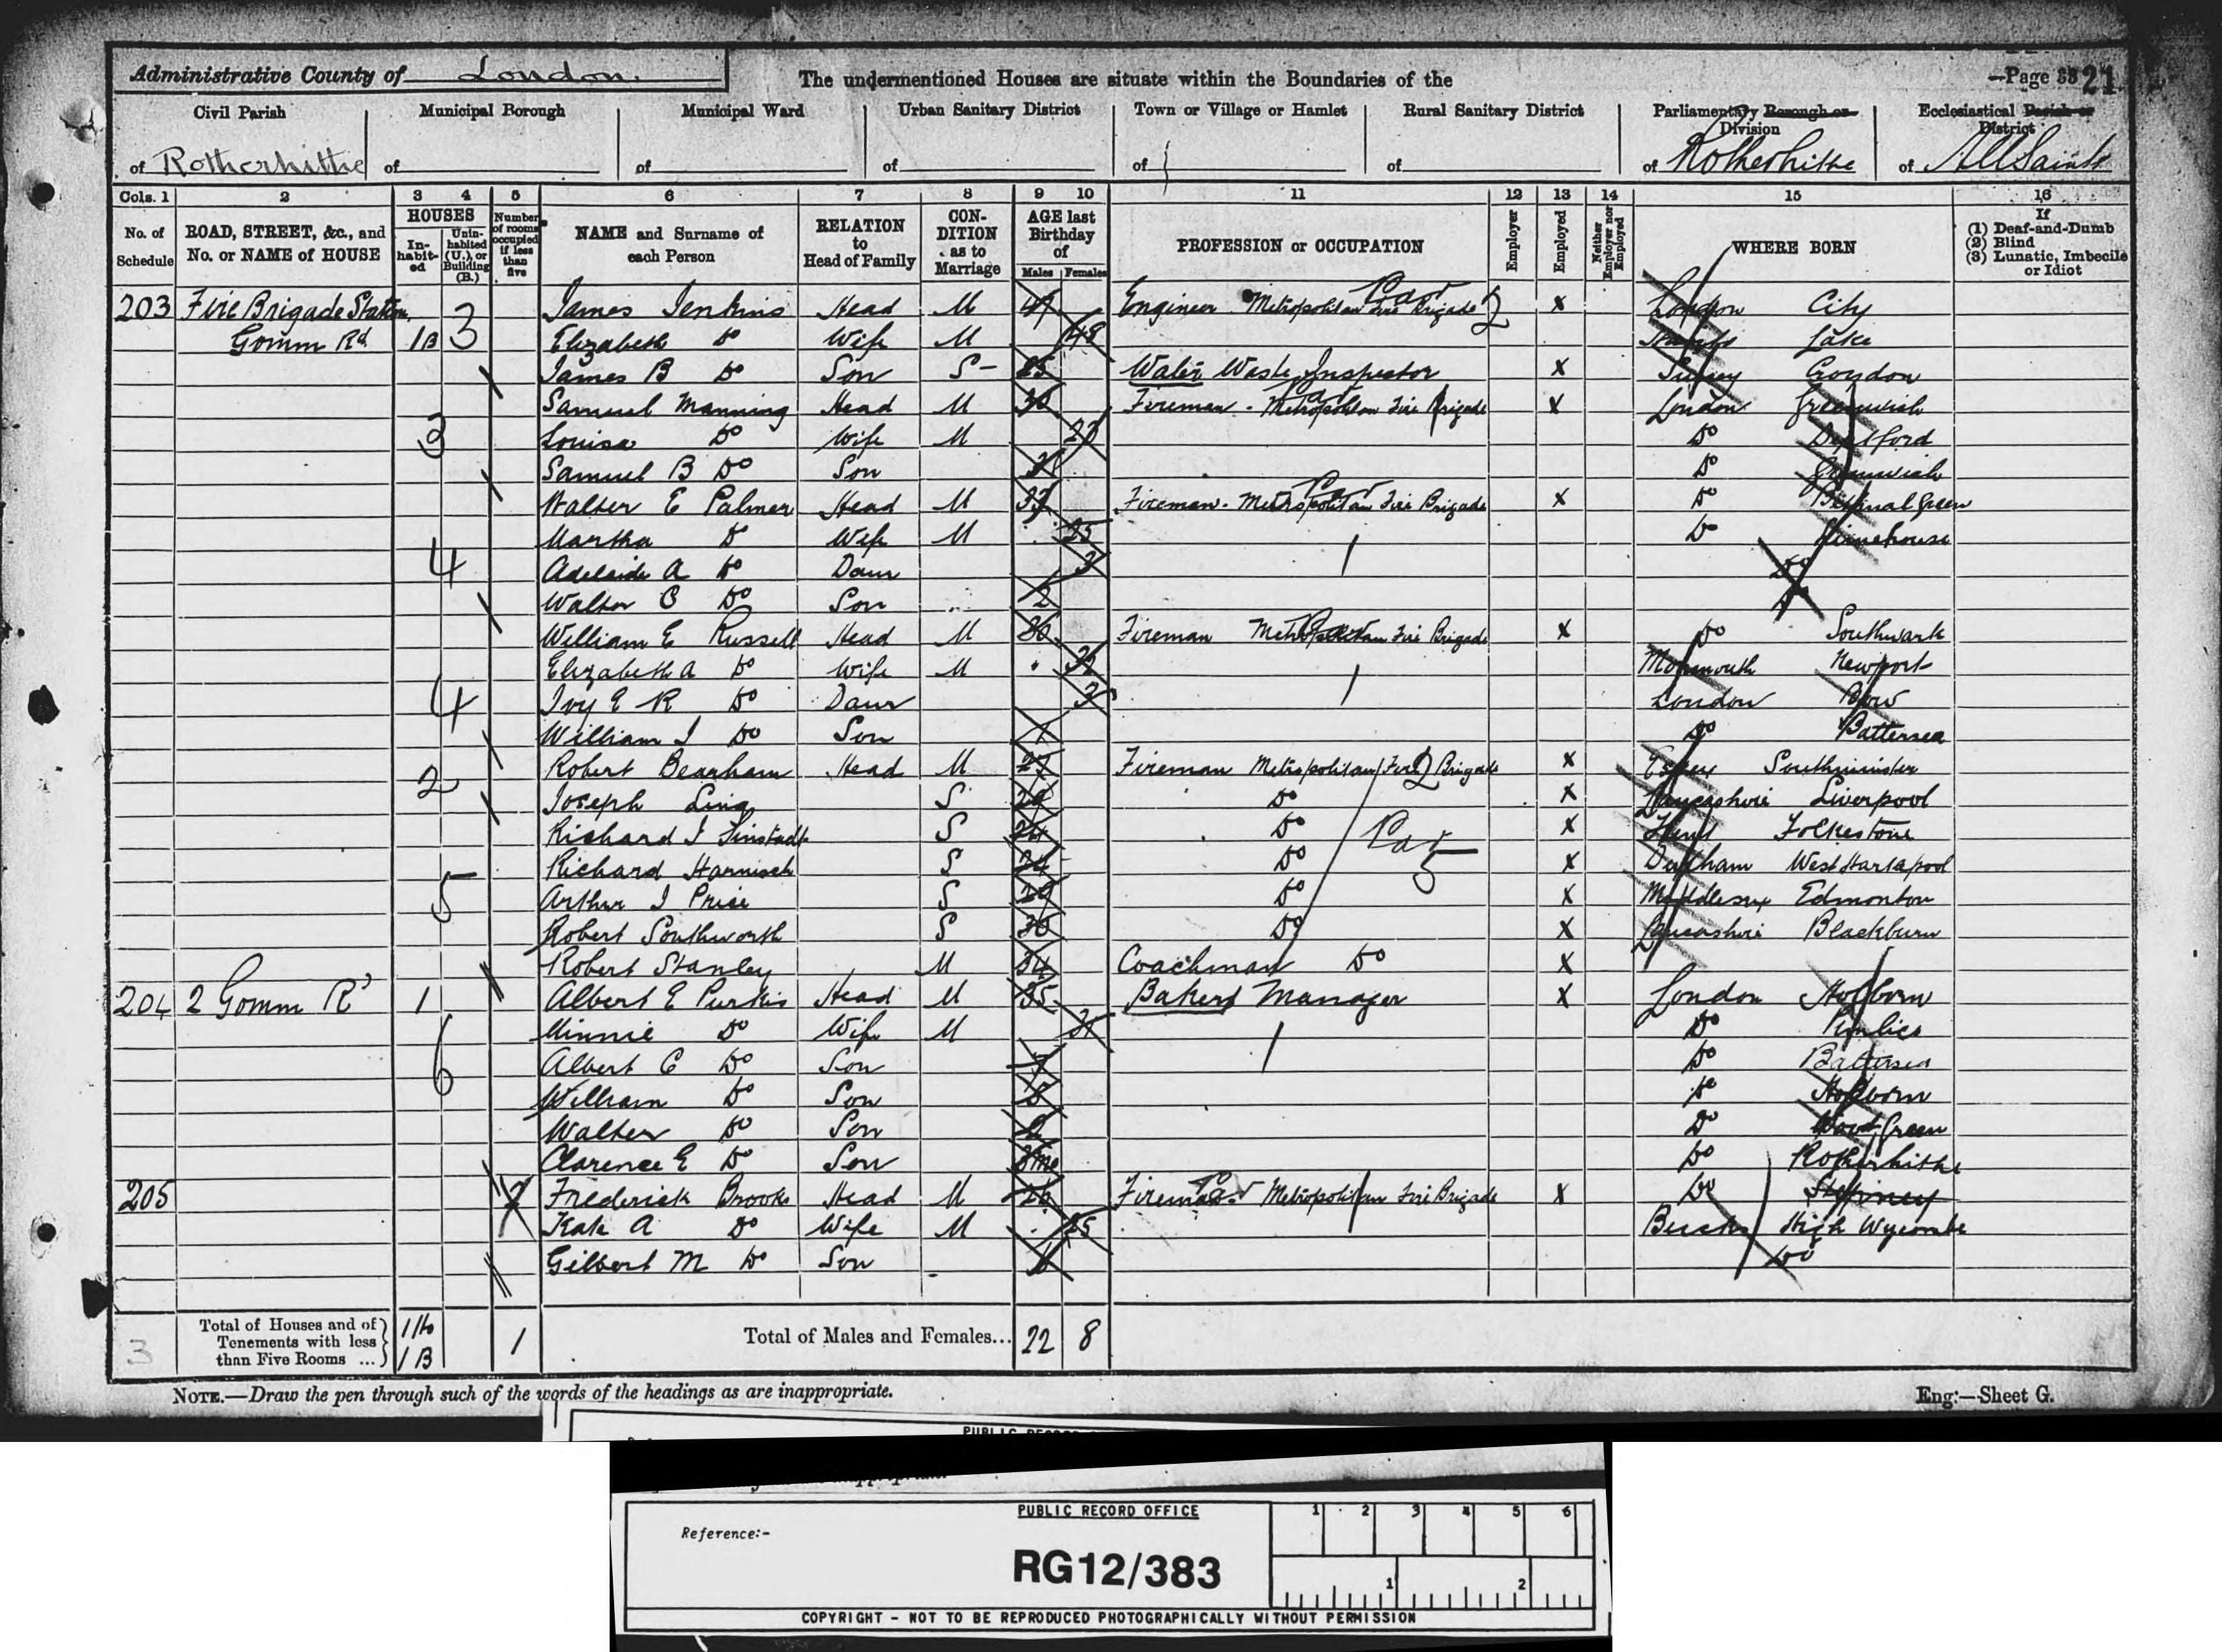 Administrative County of London.
The undermentioned Houses are situate within the Boundaries of the
—Page 33 21
Civil Parish Municipal Borough Municipal Ward Urban Sanitary District Town or Village or Hamlet Rural Sanitary District Parliamentary Borough or Division Ecclesiastical Parish or District
of Rotherhithe of of of of of of Rotherhithe of All Saints
Cols. 1 2 3 4 5 6 7 8 9 10 11 12 13 14 15 16
No. of Schedule ROAD, STREET, &c., and No. or NAME of HOUSE HOUSES Inhabited Uninhabited (U.), or Building (B.) Number of rooms occupied if less than five NAME and Surname of each Person RELATION to Head of Family CONDITION as to Marriage AGE last Birthday of Males Females PROFESSION or OCCUPATION Employer Employed Neither Employer nor Employed WHERE BORN If (1) Deaf-and-Dumb (2) Blind (3) Lunatic, Imbecile or Idiot
203 Fire Brigade Station James Jenkins Head M Engineer Metropolitan Fire Brigade X London City
Gomm Rd 1B 3 Elizabeth Do Wife M 48 Lake
James B Do Son S 25 Water Waste Inspector X Surrey Croydon
Samuel Manning Head M 30 Fireman - Metropolitan Fire Brigade X London Greenwich
3 Louisa Do Wife M Do Deptford
Samuel B Do Son Do Greenwich
Walter E Palmer Head M Fireman - Metropolitan Fire Brigade X Do Bethnal Green
Martha Do Wife M 25 Do Limehouse
4 Adelaide A Do Daur 3 Do
Walter Do Son 2 Do
William E Russell Head M 30 Fireman Metropolitan Fire Brigade X Do Southwark
Elizabeth A Do Wife M Monmouth Newport
4 Ivy E R Do Daur 3 London Bow
William J Do Son 1 Do Battersea
2 Robert Bearham Head M 27 Fireman Metropolitan Fire Brigade X Essex Southminster
Joseph Ling S Do X Lancashire Liverpool
Richard J S 24 Do X Kent Folkestone
Richard Harnisch S 24 Do X Durham West Hartlepool
5 Arthur J Price S Do X Middlesex Edmonton
Robert Southworth S 30 Do X Lancashire Blackburn
Robert Stanley M 34 Coachman Do X
204 2 Gomm Rd 1 Albert E Purkis Head M 35 Bakers Manager X London Holborn
Minnie Do Wife M Do Pimlico
6 Albert C Do Son 7 Do Battersea
William Do Son Do Holborn
Walter Do Son Do Wood Green
Clarence E Do Son Do Rotherhithe
205 Frederick Brooks Head M 26 Fireman Metropolitan Fire Brigade X Do Stepney
Kate A Do Wife M 25 Bucks High Wycombe
Gilbert M Do Son Do
3 Total of Houses and of Tenements with less than Five Rooms ... 1B 1 Total of Males and Females... 22 8
NOTE.—Draw the pen through such of the words of the headings as are inappropriate.
Eng:—Sheet G.
PUBLIC RECORD OFFICE
1 2 3 4 5 6
Reference:-
RG12/383
1 2
COPYRIGHT - NOT TO BE REPRODUCED PHOTOGRAPHICALLY WITHOUT PERMISSION